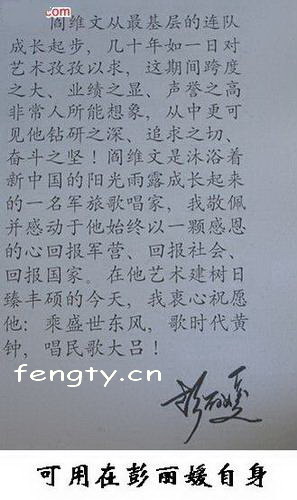 com
阎维文从最基层的连队
成长起步，几十年如一日对
艺术孜孜以求，这期间跨度
之大、业绩之显、声誉之高
非常人所能想象，从中更可
见他钻研之深、追求之切、
奋斗之坚！阎维文是沐浴着
新中国的阳光雨露成长起来
的一名军旅歌唱家，我敬佩
并感动于他始终以一颗感恩
的心回报军营、回报社会、
回报国家。在他艺术建树日
臻丰硕的今天，我衷心祝愿
他：乘盛世东风，歌时代黄
钟，唱民歌大吕！
fengty.cn
彭丽媛
可用在彭丽媛自身